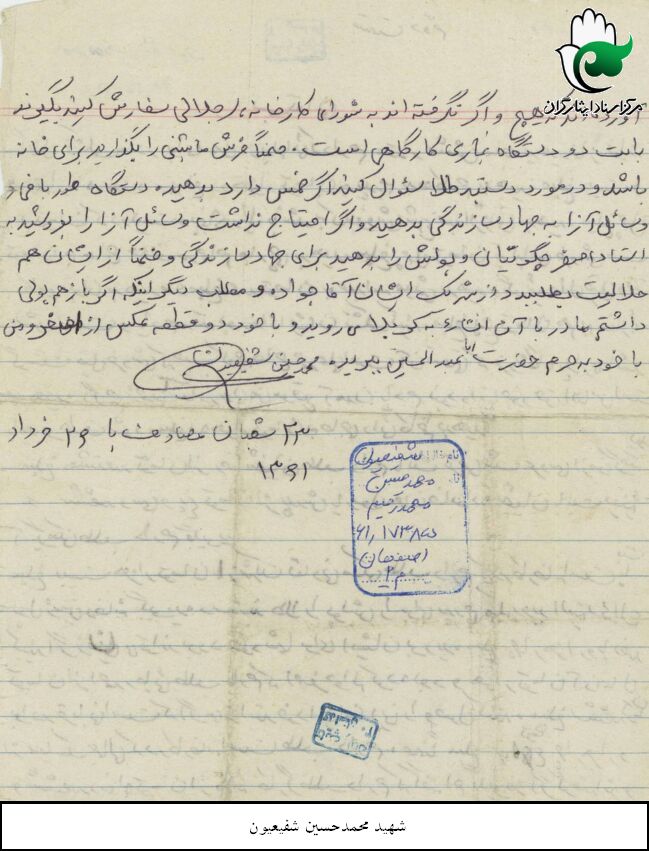 مرکز اسناد ایثارگران
آورده‌اند که هیچ و اگر نگرفته اند به شورای کارخانه، جلالی سفارش کنید بگویند
بابت دو دستگاه نجاری کارگاهی است. ضمناً فرش ماشینی را بگذارید برای خانه
باشد و در مورد دستبند طلا سئوال کنید اگر خمس دارد بدهید، دستگاه
وسائل آنرا به جهاد سازندگی بدهید و اگر احتیاج نداشت وسائل آنرا بفروشید به
استاد اصغر و پولش را بدهید برای جهاد سازندگی و ضمناً از ایشان هم
حلالیت بطلبید و از شریک ایشان آقا جواد، و مطلب دیگر اینکه اگر باز هم پولی
داشتم مادر با آن انشاء به کربلا می روید و با خود دو قطعه عکس از اصغر و من
با خود به حرم حضرت ابا عبدالحسین ببرید، محمدحسین شفیعیون
۲۳ شعبان مصادف با ۲۶ خرداد
۱۳۶۱
شفیعیون
محمدحسین
محمدرحیم
اصفهان
شهید محمدحسین شفیعیون